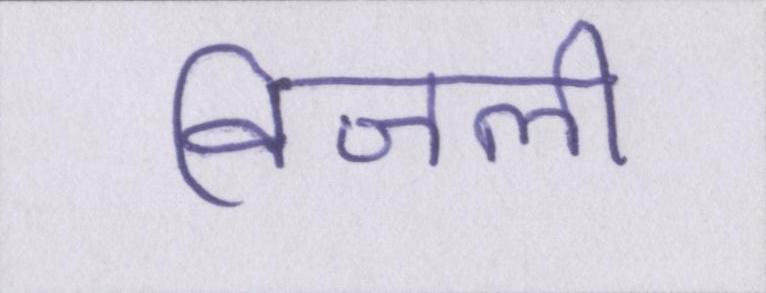 बिजली